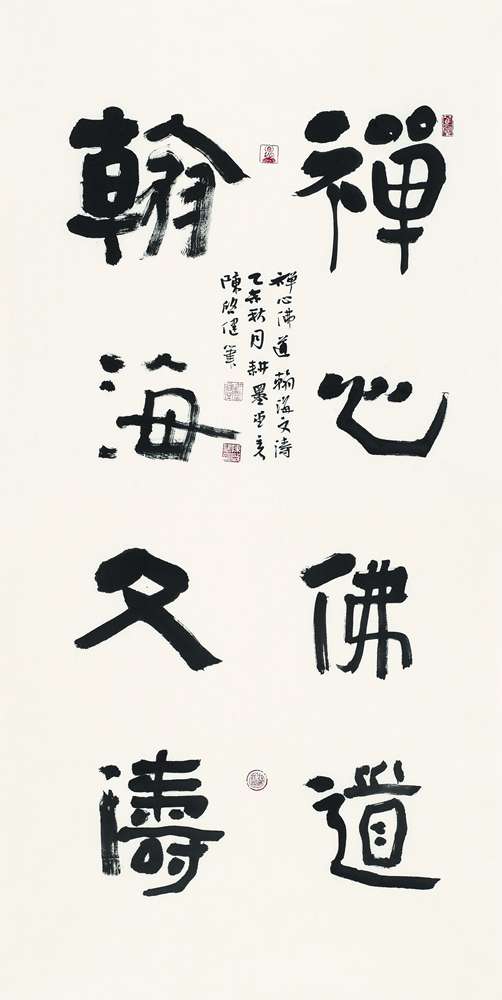 禪心佛道
翰海文濤
禪心佛道翰海文濤
乙未秋月耕墨堂主
陳啓健筆